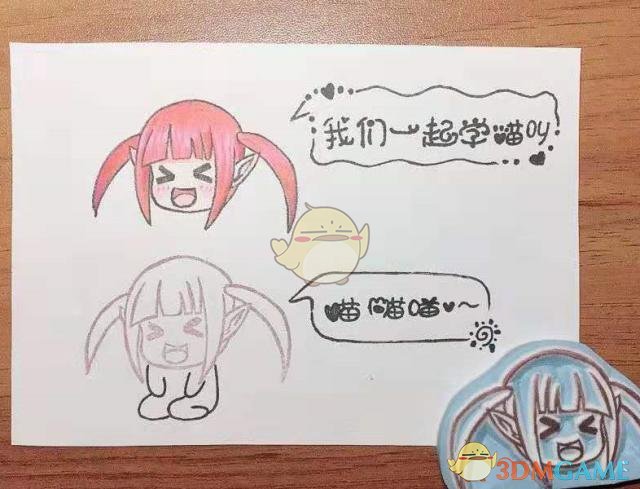 我们一起学喵oy
喵喵喵~
3DMGAME